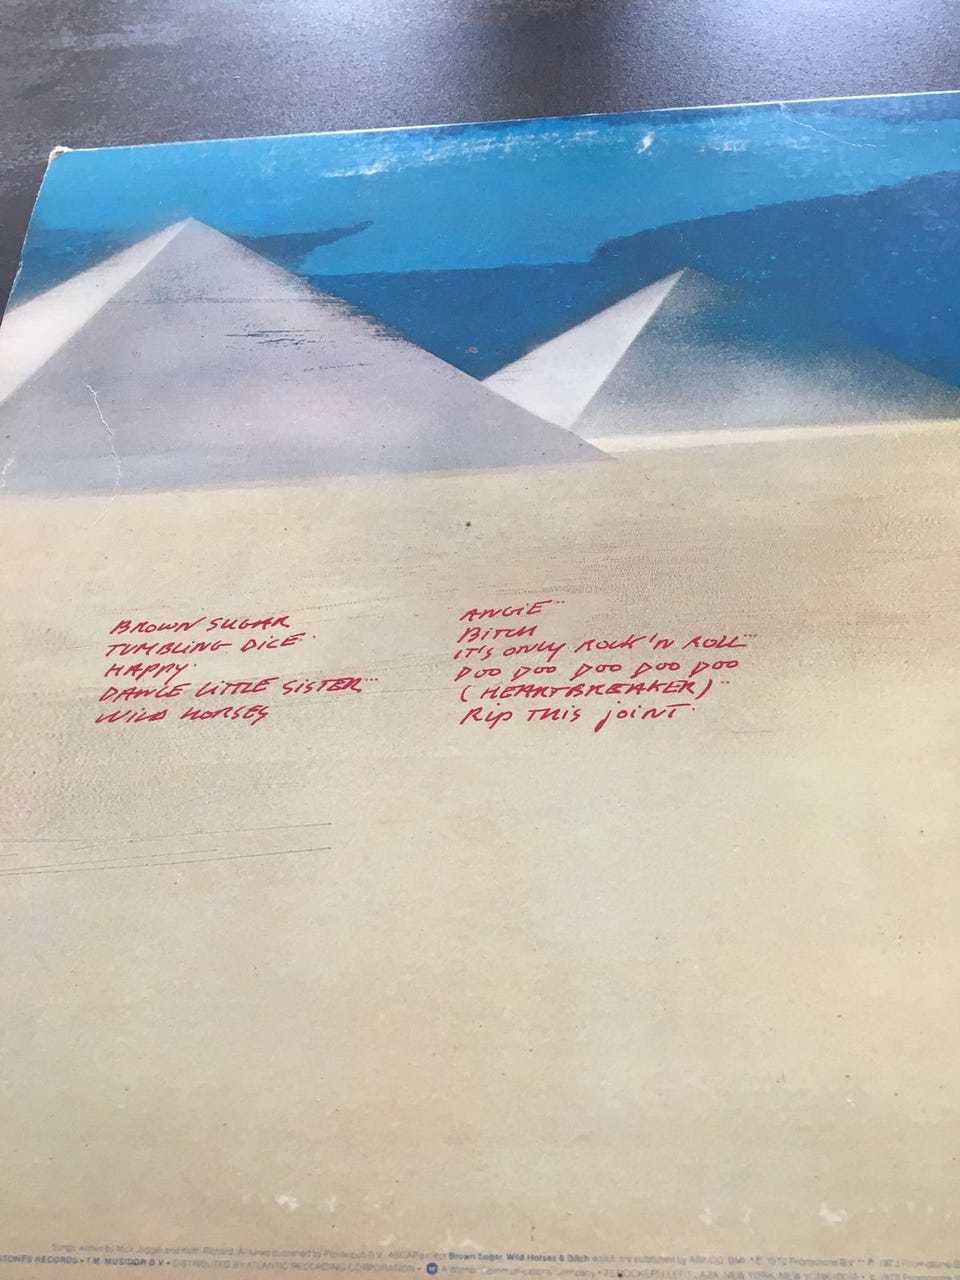 BROWN SUGAR
TUMBLING DICE·
HAPPY·
DANCE LITTLE SISTER···
WILD HORSES
ANGIE··
BITCH
IT'S ONLY ROCK 'N ROLL···
DOO DOO DOO DOO DOO
(HEARTBREAKER)··
RIP THIS joiNT·
Songs written by Mick Jagger and Keith Richard. All tunes published by Promopub B.V. ASCAP except Brown Sugar, Wild Horses & Bitch which are published by ABKCO, BMI · ℗ 1972 Promotone B.V. ·· ℗ 1973 Promotone
STONES RECORDS • T.M. MUSIDOR B.V. • DISTRIBUTED BY ATLANTIC RECORDING CORPORATION • A Warner Communications Company • 75 ROCKEFELLER PLAZA, NEW YORK, NEW YORK